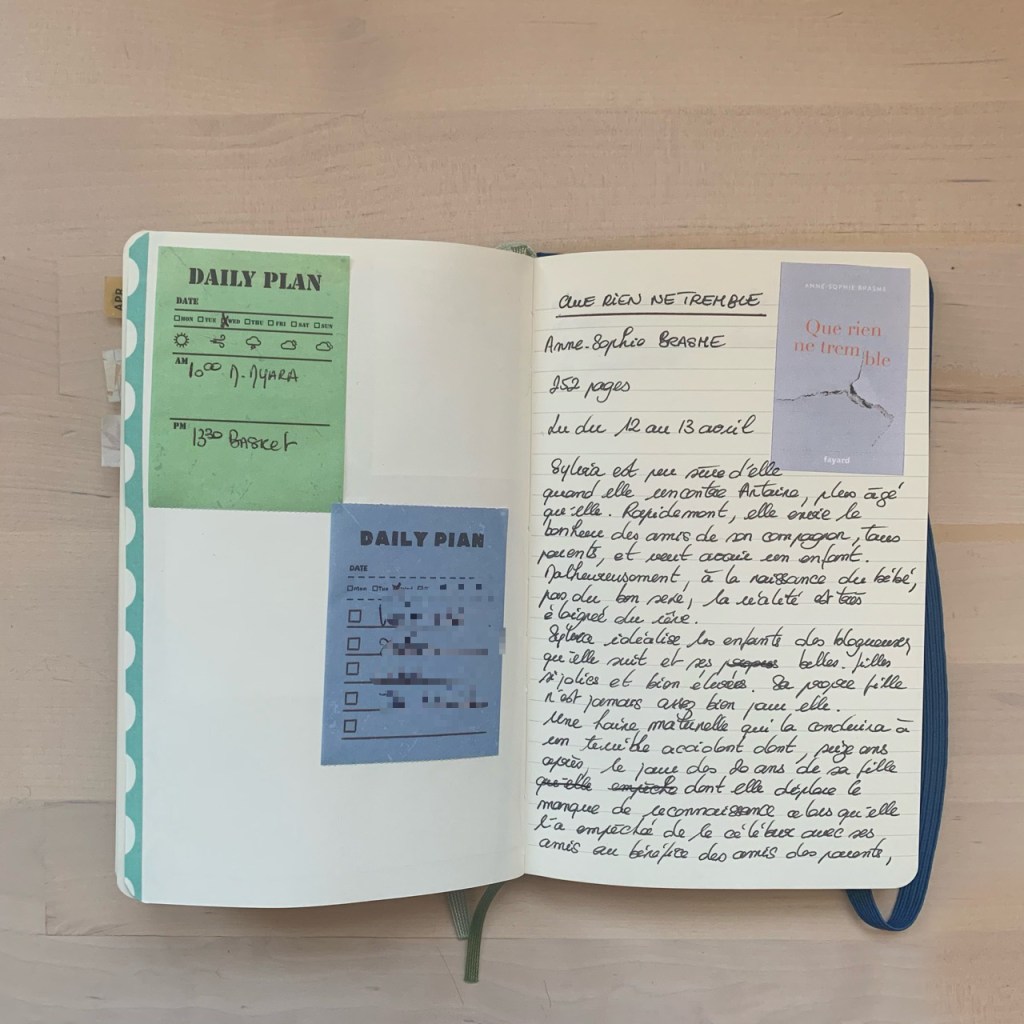 APR
DAILY PLAN
DATE
MON TUE WED THU FRI SAT SUN
AM
10⁰⁰ N. NYARA
PM
13³⁰ BASKET
DAILY PLAN
DATE
MON TUE
QUE RIEN NE TREMBLE
Anne-Sophie BRASME
252 pages
Lu du 12 au 13 avril
Sylvia est peu sûre d'elle
quand elle rencontre Antoine, plus âgé
qu'elle. Rapidement, elle envie le
bonheur des amis de son compagnon, tous
parents, et veut avoir un enfant.
Malheureusement, à la naissance du bébé,
pas du bon sexe, la réalité est très
éloignée du rêve.
Sylvia idéalise les enfants des blogueuses
qu'elle suit et ses propres belles-filles
si jolies et bien élevées. Sa propre fille
n'est jamais assez bien pour elle.
Une haine maternelle qui la conduira à
un terrible accident dont, seize ans
après, le jour des 20 ans de sa fille
qu'elle empêche dont elle déplore le
manque de reconnaissance alors qu'elle
l'a empêchée de le célébrer avec ses
amis au bénéfice des amis des parents,
ANNE-SOPHIE BRASME
Que rien
ne tremble
fayard